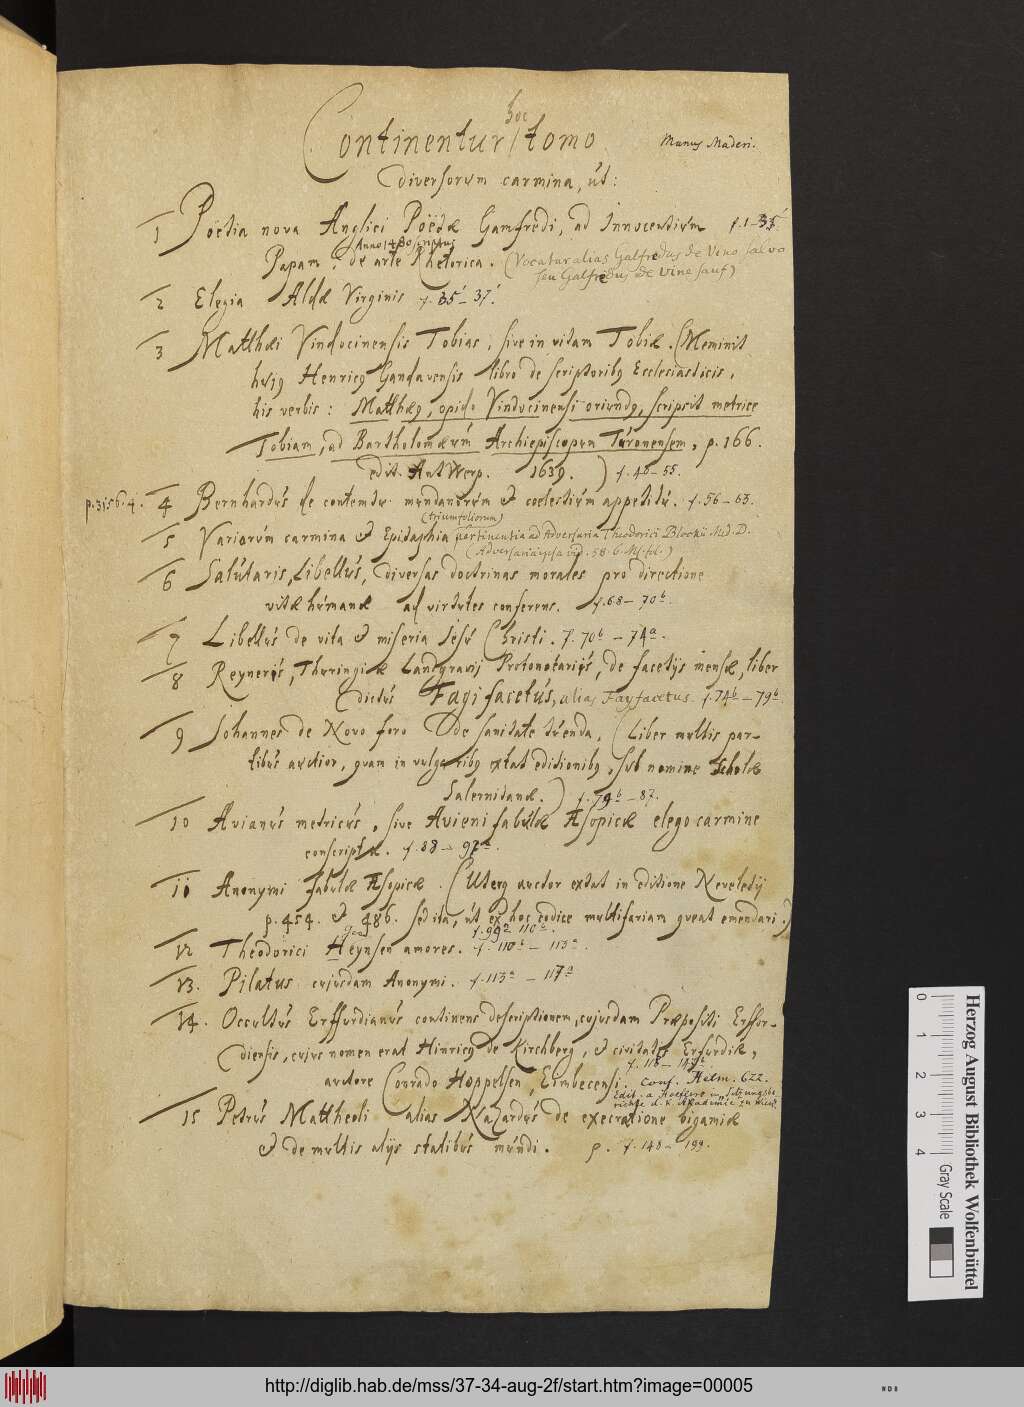 hoc
Continentur / tomo
Manus Maderi.
diversorum carmina, ut:
1 Poëtia nova Anglici Poëtæ Gamfredi, ad Innocentium f. 1-35.
Anno 1480
Papam; de arte Rhetorica. (Vocatur alias Galfredus de Vino salvo
seu Galfredus de Vinesauf)
2 Elegia Aldæ Virginis f. 35'-37'.
3 Matthæi Vindocinensis Tobias, sive in vitam Tobiæ. (Meminit
hujus Henricus Gandavensis libro de scriptoribus Ecclesiasticis,
his verbis: Matthæus, opido Vindocinensi oriundus, scripsit metrice
Tobiam, ad Bartholomæum Archiepiscopum Turonensem, p. 166.
edit. Antwerp. 1639.) f. 48-55.
p. 3156.4. 4 Bernhardus de contemtu mundanorum et coelestium appetitu. f. 56-63.
(triumfoliorum)
5 Variorum carmina et Epitaphia pertinentia ad Adversaria Theodorici Blockii Med. D.
(Adversaria ipsa vid. 58.6. Msf fol.)
6 Salutaris Libellus, diversas doctrinas morales pro directione
vitæ humanæ ad virtutes conferens. f. 68-70b.
7 Libellus de vita et miseria Jesu Christi. f. 70b-74a.
8 Reynerus, Thuringiæ Landgravij Protonotarius, de facetijs mensæ, liber
dictus Fagifacetus, alias Fayfacetus. f. 74b-79b.
9 Johannes de Novo foro De sanitate tuenda. (Liber multis par-
tibus auctior, quam in vulgaribus extat editionibus, sub nomine Scholæ
Salernitanæ.) f. 79b-87.
10 Avianus metricus, sive Avieni fabulæ Æsopicæ elego carmine
conscriptæ. f. 88-92a.
11 Anonymi fabulæ Æsopicæ. (Uterque auctor extat in editione Neveletij
p. 454. et 486. sed ita, ut ex hoc codice multifariam queat emendari.)
f. 992 110a.
12 Theodorici Heynsen amores. f. 110b-113a.
13. Pilatus cujusdam Anonymi. f. 113a-117a
14. Occultus Erffurdianus continens descriptionem, cujusdam Præpositi Erffur-
diensis, cujus nomen erat Hinricus de Kirchberg, et civitatis Erfurdiæ,
f. 118-147b.
autore Conrado Hoppelsen, Eimbecensi. conf. Helm. 622.
Edit. a Hoefero in Sitzungsbe
richte d. k. Akademie zu Wien.
15 Petrus Mattheoli alias Nazardus de execratione bigamiæ
et de multis alijs statibus mundi. p. f. 148-199.
Herzog August Bibliothek Wolfenbüttel
0 1 2 3 4 Gray Scale
http://diglib.hab.de/mss/37-34-aug-2f/start.htm?image=00005